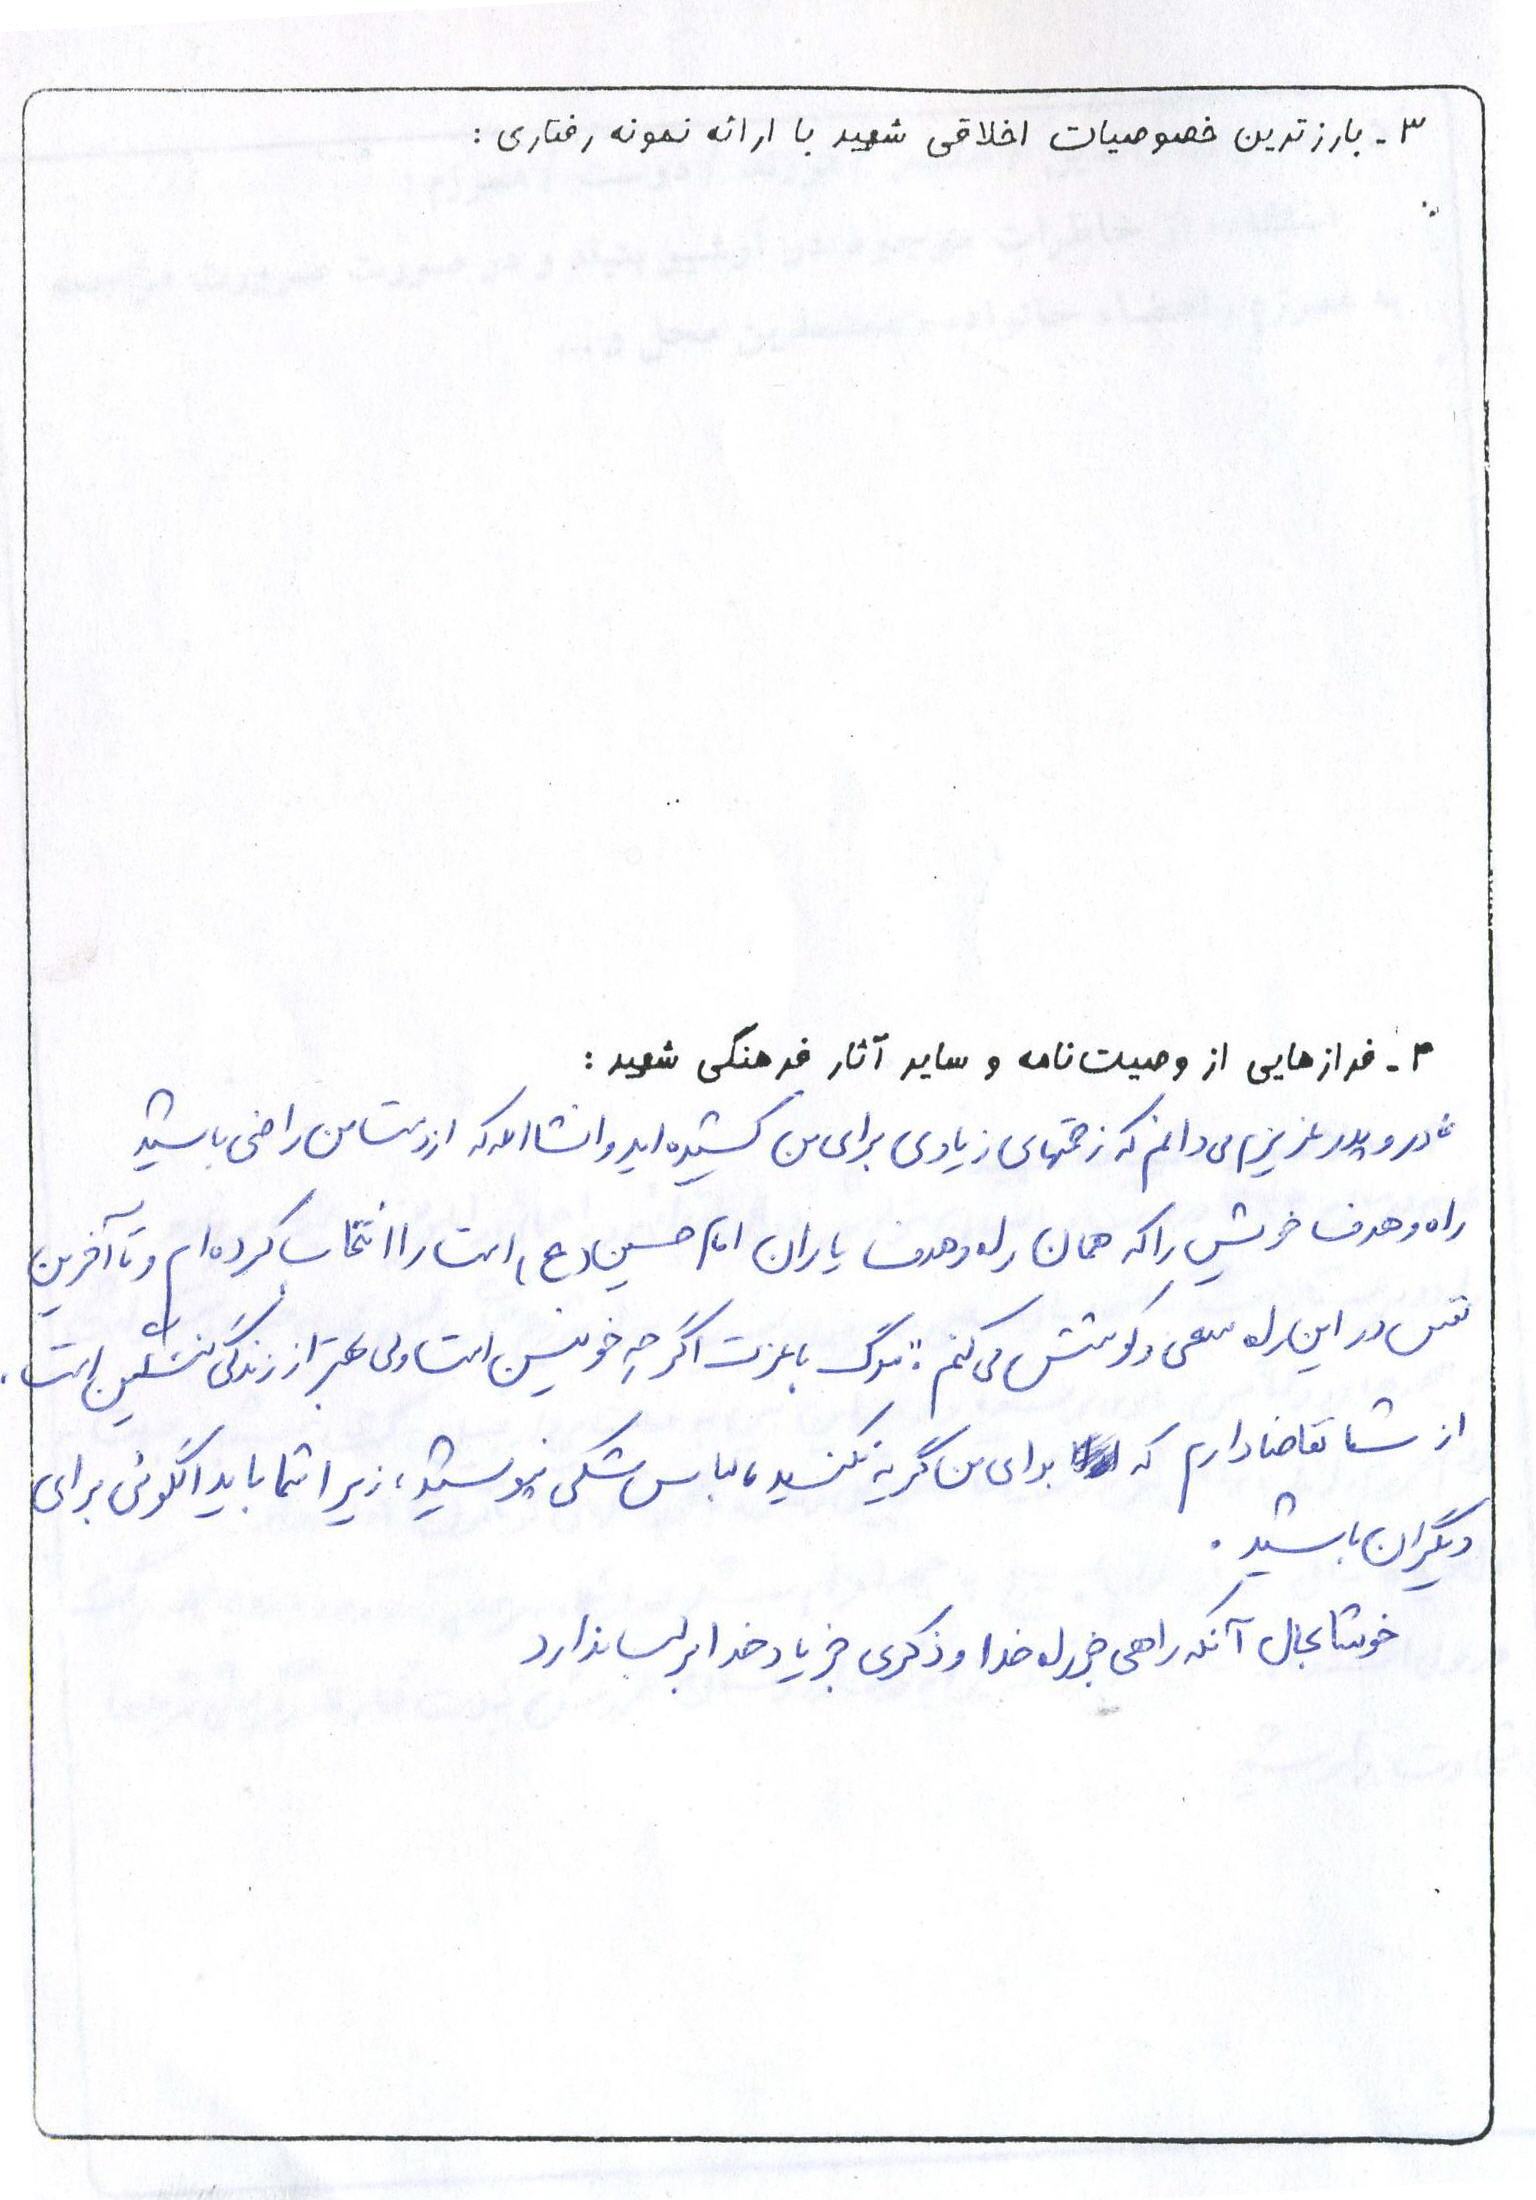 ۳- بارزترین خصوصیات اخلاقی شهید با ارائه نمونه رفتاری :
۴- فرازهایی از وصیت‌نامه و سایر آثار فرهنگی شهید :
مادر و پدر عزیزم می دانم که زحمتهای زیادی برای من کشیده اید و انشاالله که از دست من راضی باشید
راه و هدف خویش را که همان راه و هدف یاران امام حسین (ع) است را انتخاب کرده ام و تا آخرین
نفس در این راه سعی و کوشش می کنم : مرگ با عزت اگر چه خونین است ولی بهتر از زندگی ننگین است .
از شما تقاضا دارم که برای من گریه نکنید ، لباس مشکی نپوشید ، زیرا شما باید الگوئی برای
دیگران باشید .
خوشا بحال آنکه راهی جز راه خدا و ذکری جز یاد خدا بر لب ندارد